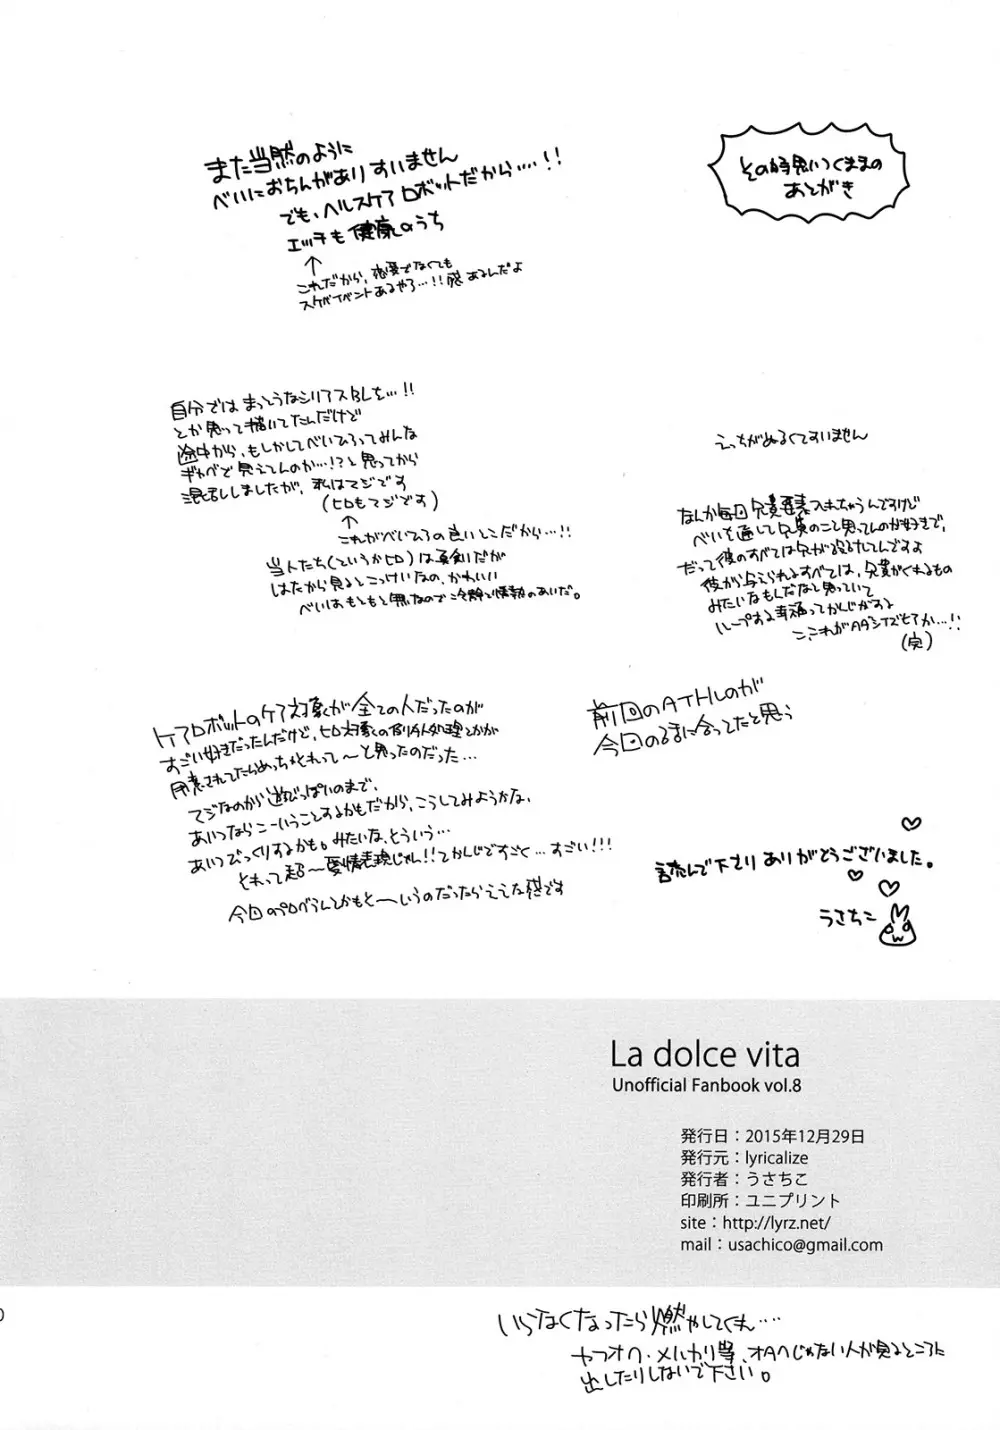 その時思いつくままの
あとがき
また当然のように
べいにおちんがありすいません
でも、ヘルスケアロボットだから….!!
エッチも健康のうち
↑
これだから、恋愛でなくても
スケベイベントあるやろ…!!感あるんだよ
自分ではまっとうなシリアスBLを…!!
とか思って描いてたんだけど
途中から、もしかしてべいひろってみんな
ギャグで見えてんのか…!?と思ってから
混乱しましたが、私はマジです
(ヒロもマジです)
↑
これがべいひろの良いとこだから…!!
当人たち(というかヒロ)は真剣だが
はたから見るとこっけいなの、かわいい
べいはもともと無なので冷静と情熱のあいだ。
えっちがぬるくてすいません
なんか毎回兄貴要素入れちゃうんですけど
べいを通して兄貴のこと思ってんのが好きで、
だって彼のすべては兄が設けてんですよ
彼から与えられるすべては、兄貴がくれるもの
みたいなもんだなと思っていて
ループする幸福ってかんじがする
こ、これが
(完)
ケアロボットのケア対象が全ての人だったのが
すごい好きだったんだけど、ヒロ対象の 処理とかが
用意されてたらめっちゃ それって〜と思ったのだった…
マジなのから遊びっぽいのまで、
あいつならこーいうことするかもだから、こうしてみようかな、
あいつびっくりするかも。みたいな、そういう…
それって超〜愛情表現じゃん!!てかんじですごく…すごい!!!
今回のプロぺらんとかもそーいうのだったらええな感です
前回のATトルのが
今回のに合ってたと思う
読んで下さりありがとうございました。
うさちこ
La dolce vita
Unofficial Fanbook vol.8
発行日：2015年12月29日
発行元：lyricalize
発行者：うさちこ
印刷所：ユニプリント
site：http://lyrz.net/
mail：usachico@gmail.com
0
いらなくなったら燃やしてくれ….
ヤフオク・メルカリ等、オタクじゃない人が見るところに
出したりしないで下さい。